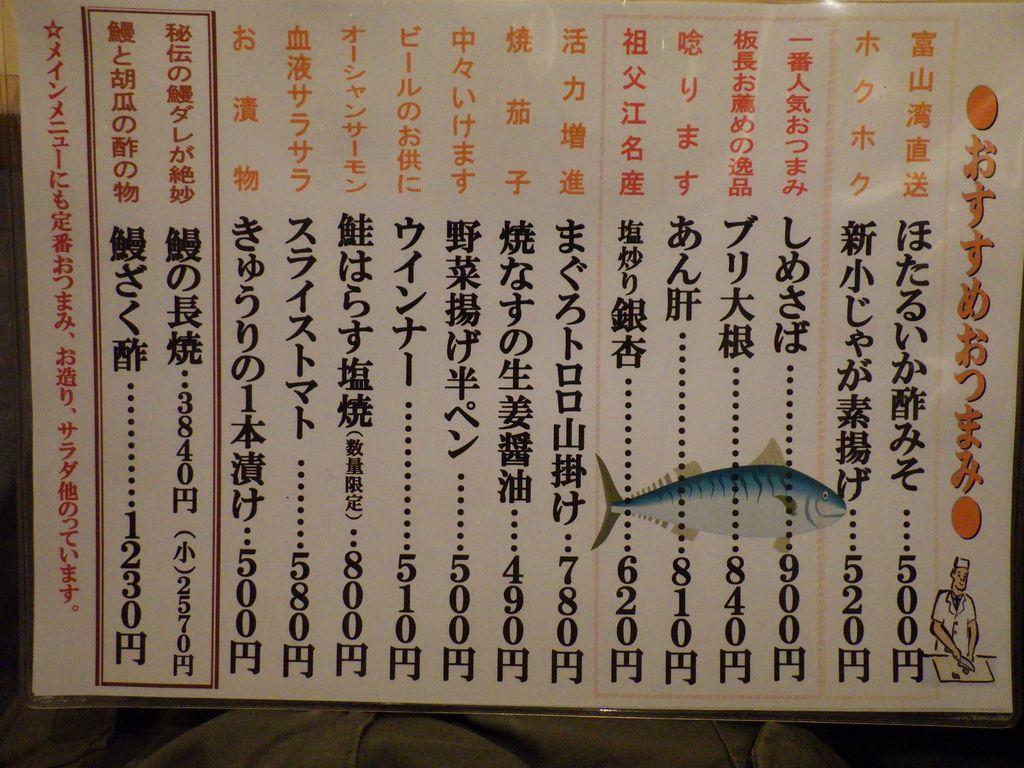 ●おすすめおつまみ●
富山湾直送 ほたるいか酢みそ……500円
ホクホク 新小じゃが素揚げ……520円
一番人気おつまみ しめさば…………900円
板長お薦めの逸品 ブリ大根…………840円
唸ります あん肝…………810円
祖父江名産 塩炒り銀杏…………620円
活力増進 まぐろトロロ山掛け…780円
焼茄子 焼なすの生姜醤油……490円
中々いけます 野菜揚げ半ペン………500円
ビールのお供に ウインナー…………510円
オーシャンサーモン 鮭はらす塩焼(数量限定)…800円
血液サラサラ スライストマト………580円
お漬物 きゅうりの1本漬け…500円
秘伝の鰻ダレが絶妙 鰻の長焼…3840円(小)2570円
鰻と胡瓜の酢の物 鰻ざく酢…………1230円
☆メインメニューにも定番おつまみ、お造り、サラダ他のっています。